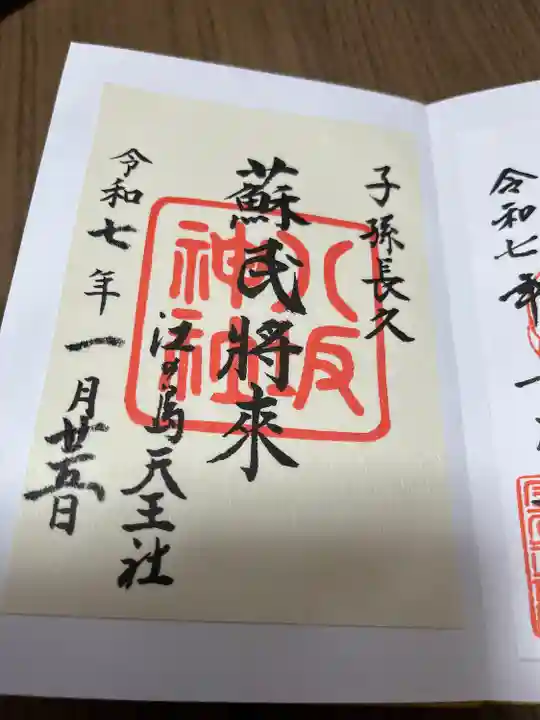 令和七年一
子孫長久
蘇民將來
八坂神社
江の島天王社
令和七年一月廿五日